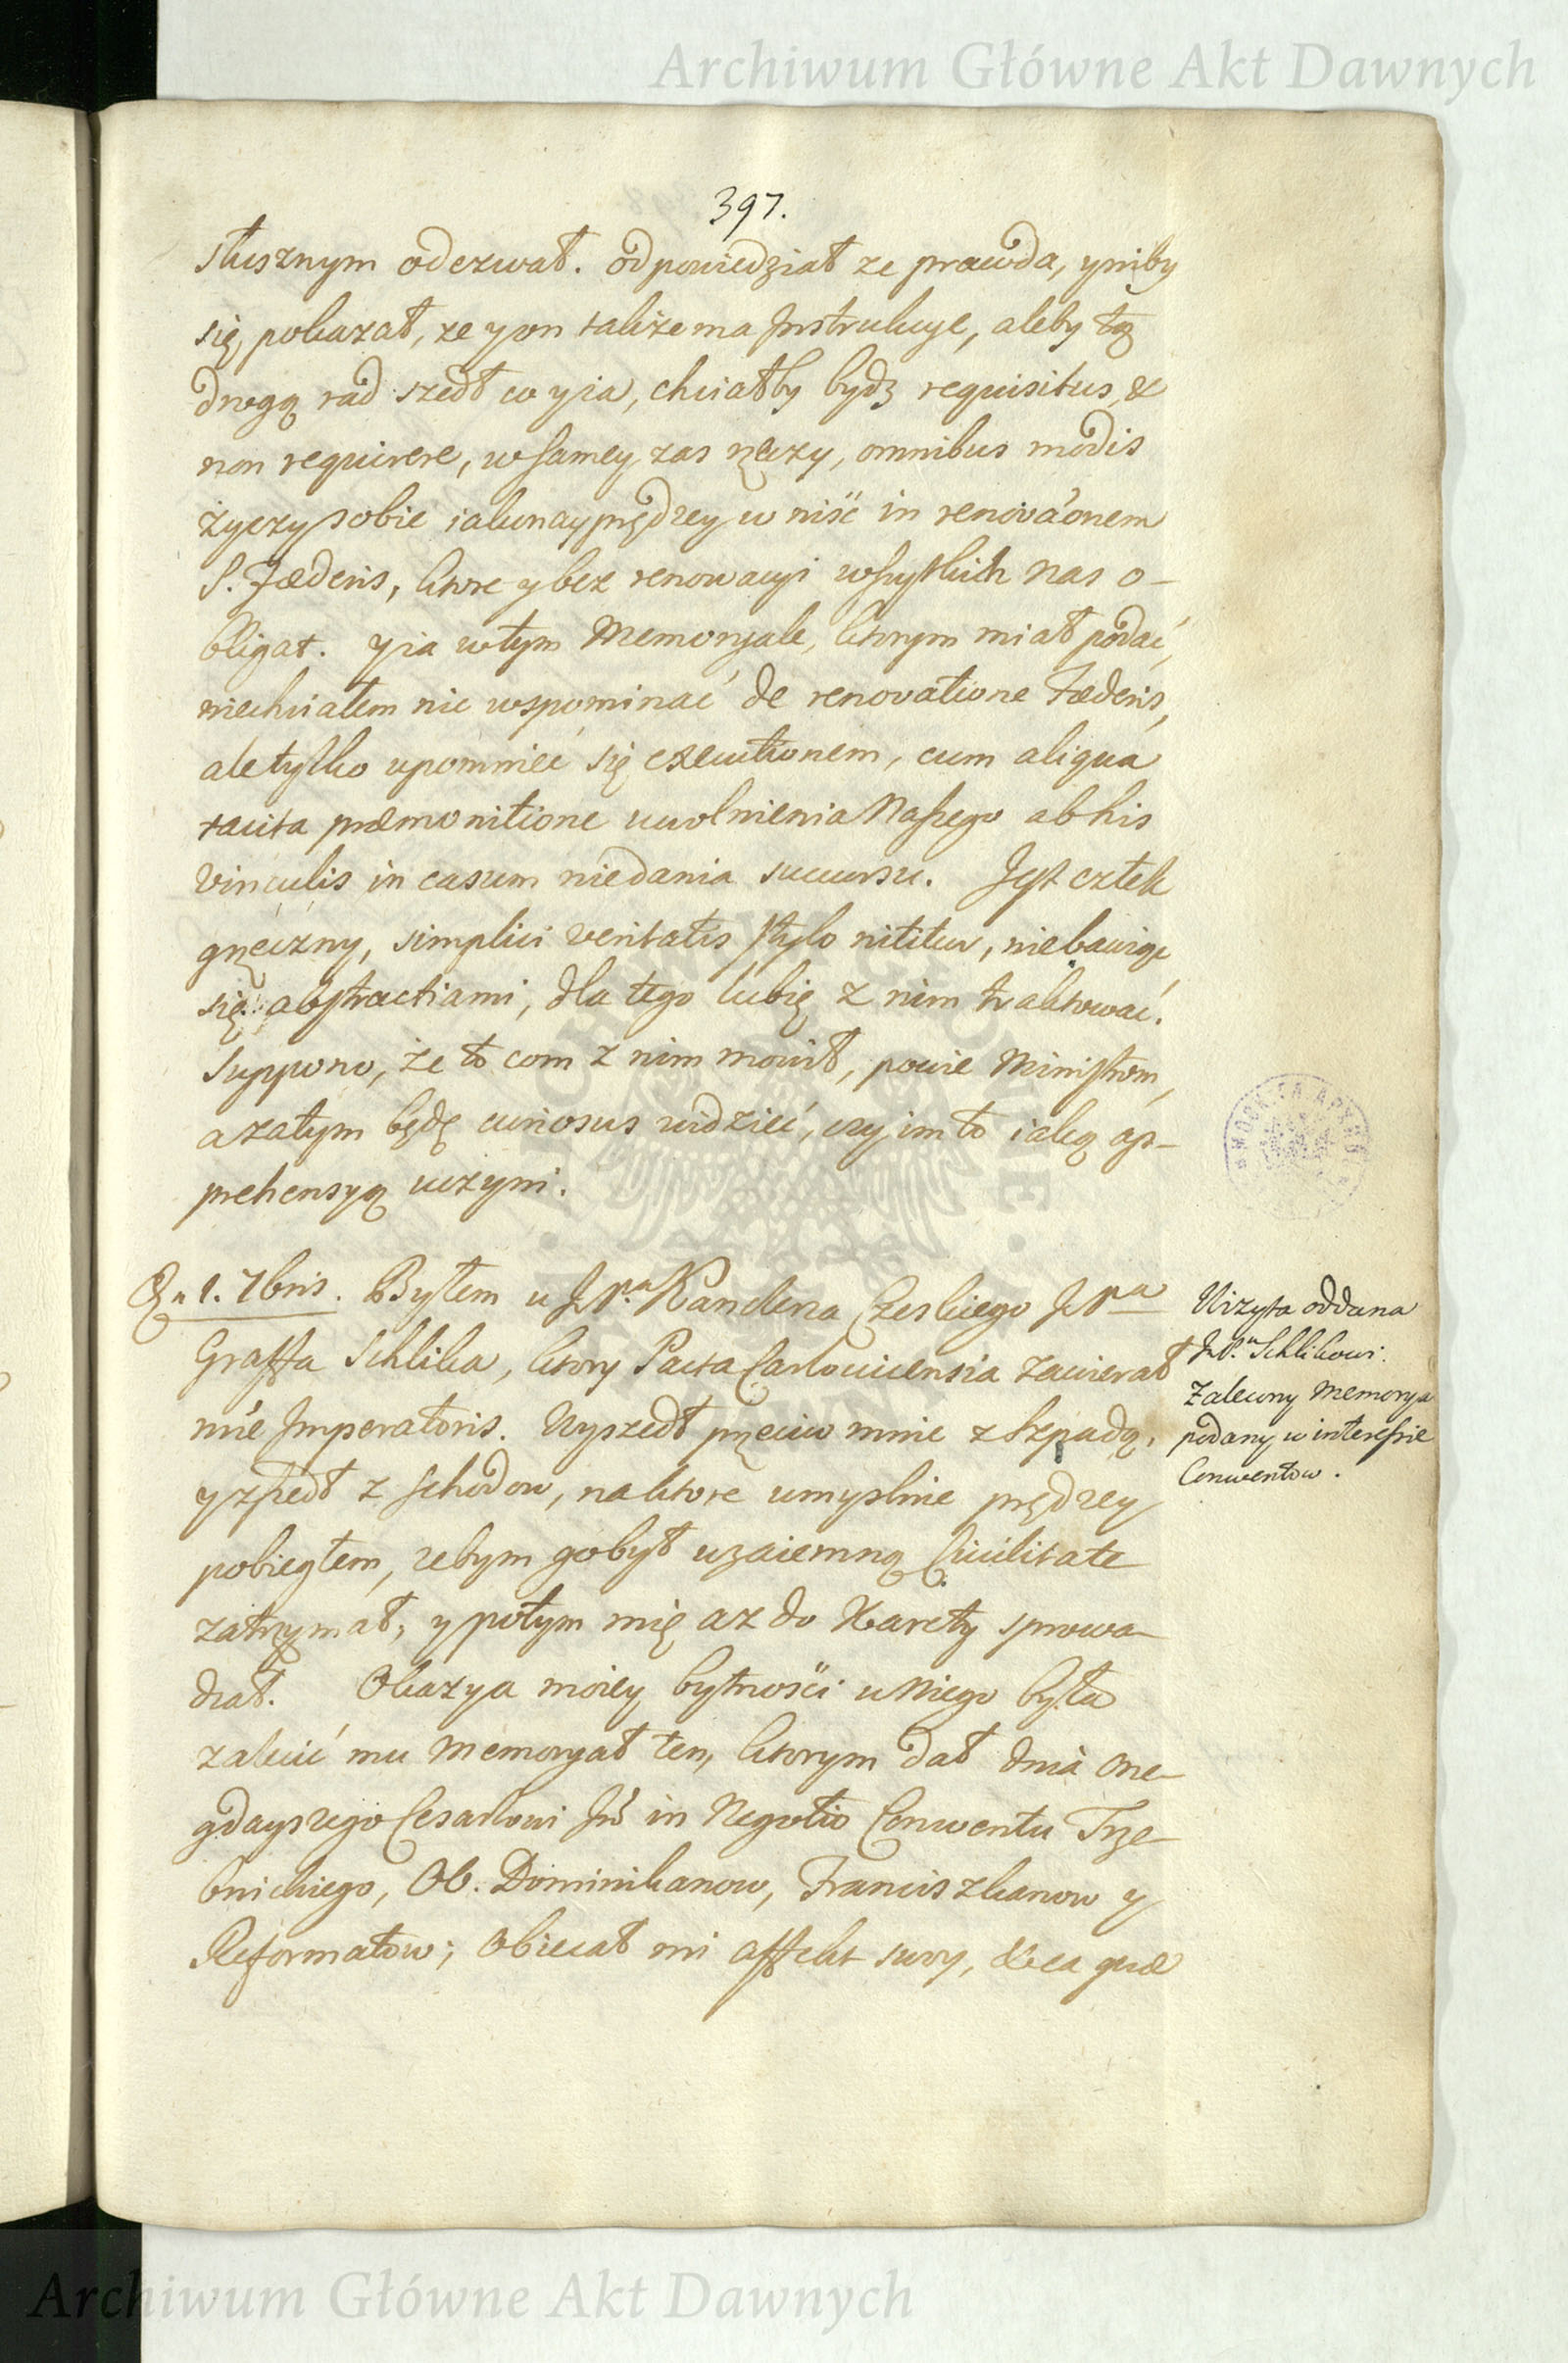 Archiwum Główne Akt Dawnych
397.
słusznym odezwał. odpowiedział ze prawda, y niby
się pokazał, ze y on takiże ma Instrukcye, aleby tą
drogą rad szedł co y ia, chciałby bydz requisitus, &
non requirere, w samey zas rzeczy, omnibus modis
życzy sobie iaknayprędzey wniść in renovãonem
S. Fæderis, ktore y bez renowacyi wszystkich nas o-
bligat. y ia w tym Memoryale, ktorym miał podać,
niechciałem nic wspominać de renovatione Fæderis,
ale tylko upomnieć się executionem, cum aliqua
tacita præmonitione uwolnienia Naszego ab his
vinculis in casum niedania succursu. Jest człek
grzeczny, simplici veritatis stylo nititur, niebawiąc
się abstractiami, dla tego lubię z nim traktować.
Suppono, że to com z nim mowił, powie Ministrom,
a zatym będę curiosus widzieć, czy im to iaką ap-
prehensyą uczyni.
1. 7bris. Byłem u JP.ª Kanclerza Czeskiego JPª
Graffa Schlika, ktory Pacta Carlovicensia zawierał
nñe Imperatoris. Wyszedł przeciw mnie z Szpadą,
y zszedł z schodow, na ktore umyslnie prędzey
pobiegłem, zebym go był wzaiemną Civilitate
zatrzymał, y potym mię az do Karety sprowa-
dzał. Okazya moiey bytności u Niego była
zalecić mu Memoryał ten, ktorym dał dnia one-
gdayszego Cesarzowi Jmć in Negotio Conwentu Trze-
bnickiego, OO. Dominikanow, Franciszkanow y
Reformatow; Obiecał mi affekt swoy, & ea quæ
Wizyta oddana
JP.ª Schlikowi.
Zalecony Memorya
podany w interessie
Conwentow.
Archiwum Główne Akt Dawnych